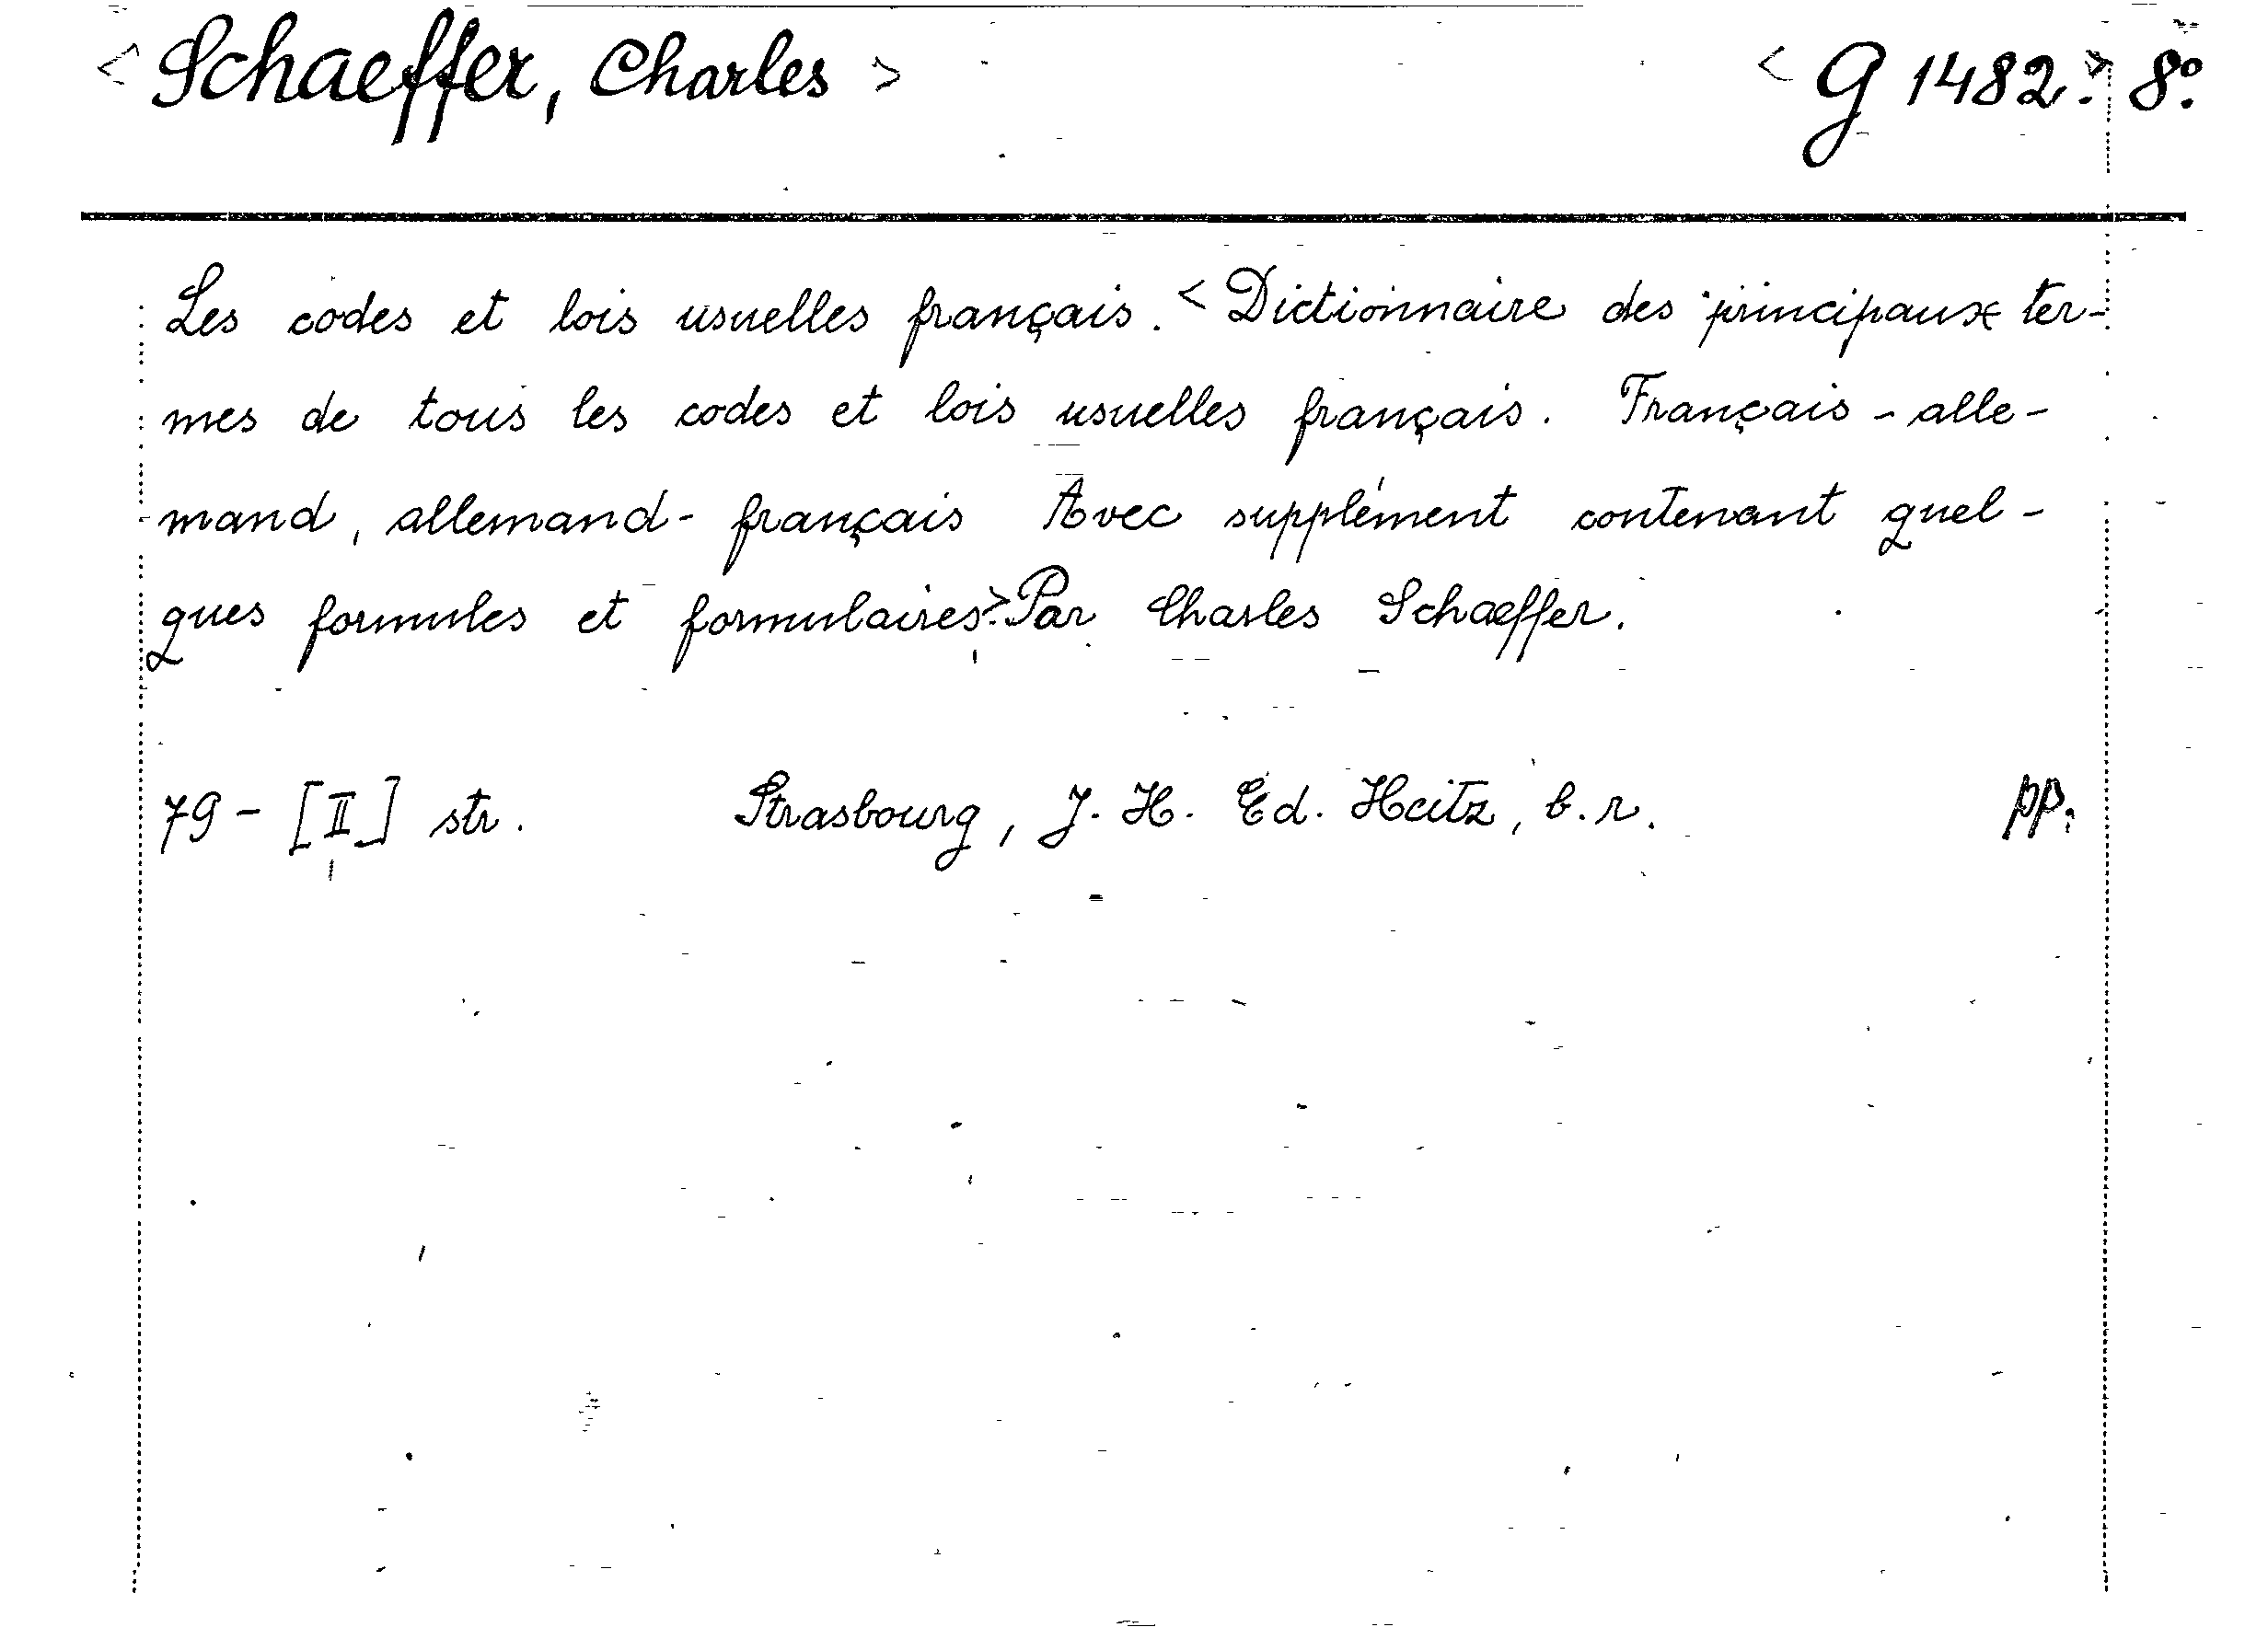 < Schaeffer, Charles > < G 1482. > 8°.
Les codes et lois usuelles français. < Dictionnaire des principaux ter-
mes de tous les codes et lois usuelles français. Français - alle-
mand, allemand - français Avec supplément contenant quel-
ques formules et formulaires. > Par Charles Schaeffer.
79 - [II] str. Strasbourg, J. H. Ed. Heitz, b. r. pp.